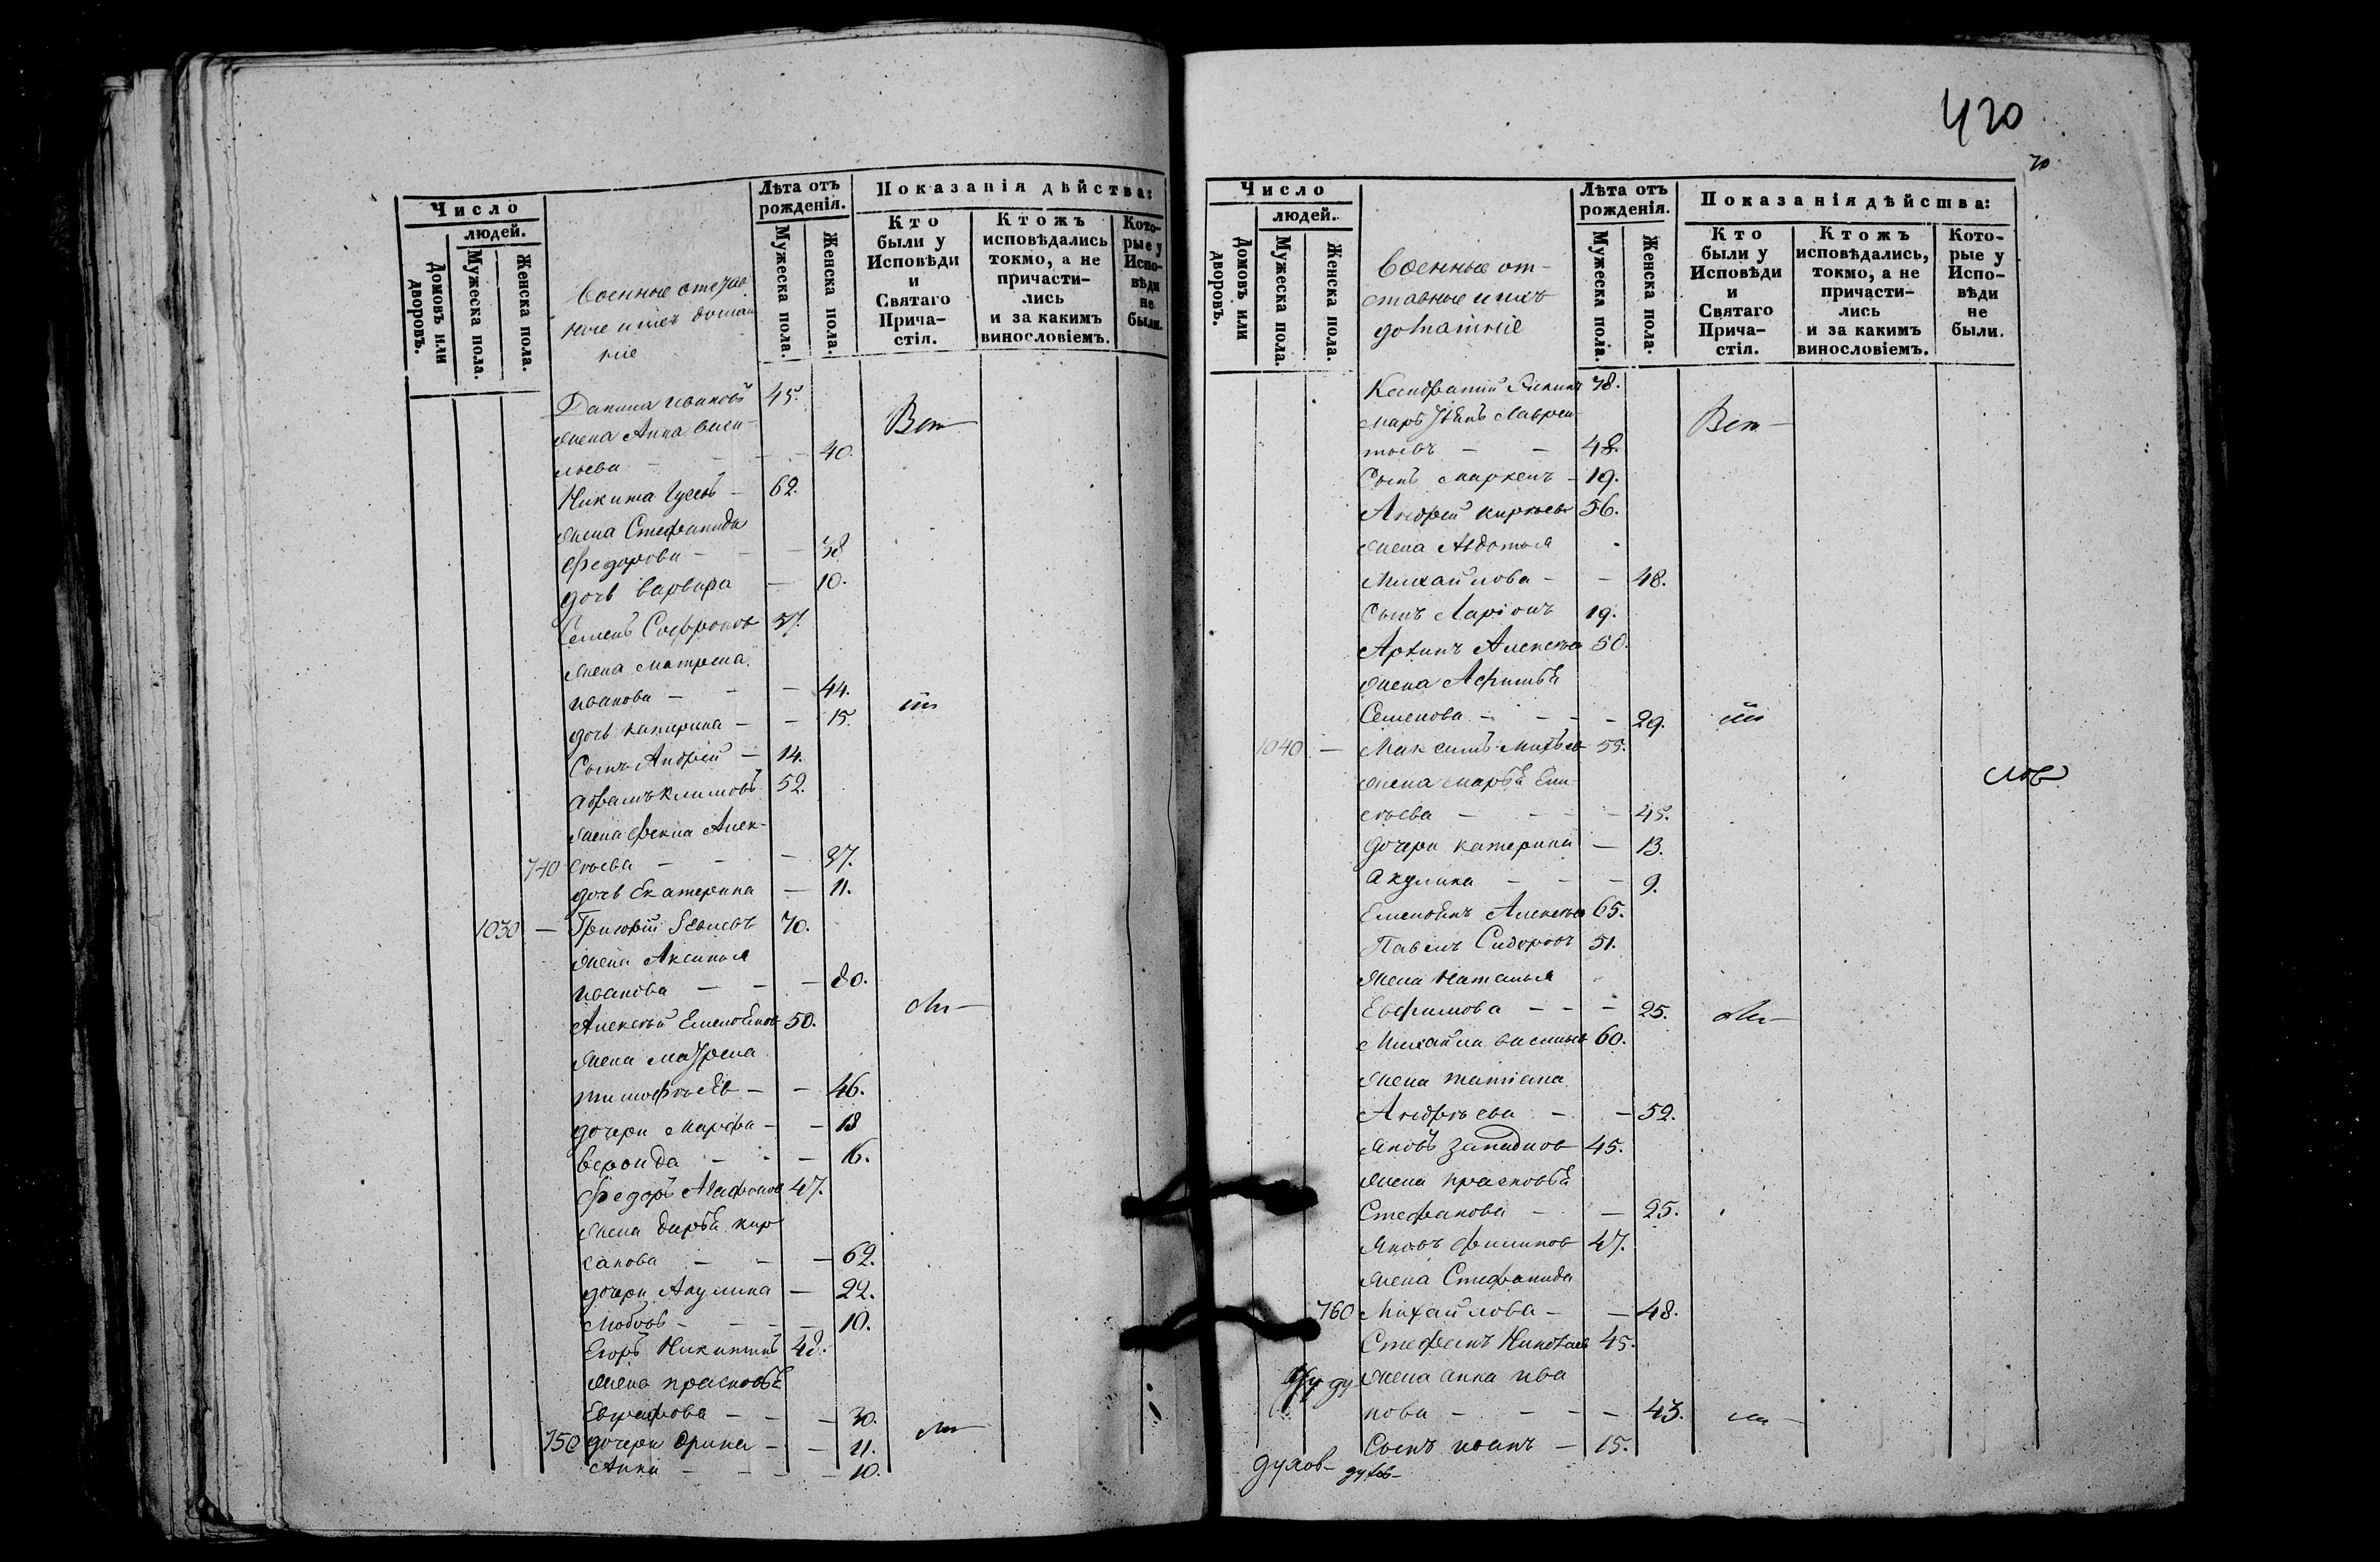 Число
людей.
Домовъ или дворовъ.
Мужеска пола.
Женска пола.
Военные отстав
ные и ихъ домаш
ніе
Лѣта отъ рожденія.
Мужеска пола.
Женска пола.
Показанія дѣйства:
Кто были у Исповѣди и Святаго Прича-стія.
Ктожъ исповѣдались токмо, а не причасти-лись и за какимъ винословіемъ.
Кото-рые у Испо-вѣди не были.
Данила Ивановъ 45.
жена Анна Васи-
льева — — — 40.
Вст
Никита Гусевъ — 62.
жена Стефанида
Федорова — — — 38
дочь Варвара — 10.
Семенъ Софроновъ 57.
жена Матрена
Иванова — — — 44.
дочь Катерина — — 15.
Сынъ Андрей — 14.
Абрамъ Климовъ 52.
жена Фекла Алек-
740 сѣева — — — 37.
дочь Екатерина — 11.
1030 — Григорій 70.
жена Аксинья
Иванова — — — 80.
Алексѣй Емельянов 50.
жена Матрена
Тимофѣева — — 46.
дочери Марфа — — 18
— — — 16.
Федоръ Агафонов 47.
жена Дарья Кир
санова — — — 62.
дочери Акулина — 22.
Любовь — — — — 10.
Егоръ Никитинъ 48.
жена Прасковья
Евграфова — — — 30.
750 дочери Орина — — 11.
Анна — — — — 10.
420
70
Число
людей.
Домовъ или дворовъ.
Мужеска пола.
Женска пола.
Военные от-
ставные и ихъ
домашніе
Лѣта отъ рожденія.
Мужеска пола.
Женска пола.
Показанія дѣйства:
Кто были у Исповѣди и Святаго Прича-стія.
Ктожъ исповѣдались, токмо, а не причасти-лись и за какимъ винословіемъ.
Кото-рые у Испо-вѣди не были.
Кондратій 78.
Лаврен
тьевъ — — 48.
Вст
Сынъ — 19.
Андрей 56.
жена Авдотья
Михайлова — — 48.
Сынъ Ларіонъ 19.
Архипъ Алексѣев 50.
жена Афимья
Семенова — — — — 29.
1040 — Максимъ 55.
жена Марья Ели
сѣева — — — — 45.
дочери Катерина — 13.
Акулина — — — 9.
Емельянъ Алексѣев 65.
Павелъ Сидоровъ 51.
жена Наталья
Евфимова — — — 25.
Михайла Васильев 60.
жена Татіана
Андрѣева — — 52.
Яковъ 45.
жена Прасковья
Стефанова — — 25.
Яковъ Филипов 47.
жена Стефанида
760 Михайлова — — 48.
Стефанъ Николаев 45.
жена Анна Ива
нова — — — — 43.
Сынъ Иванъ — 15.
духов—